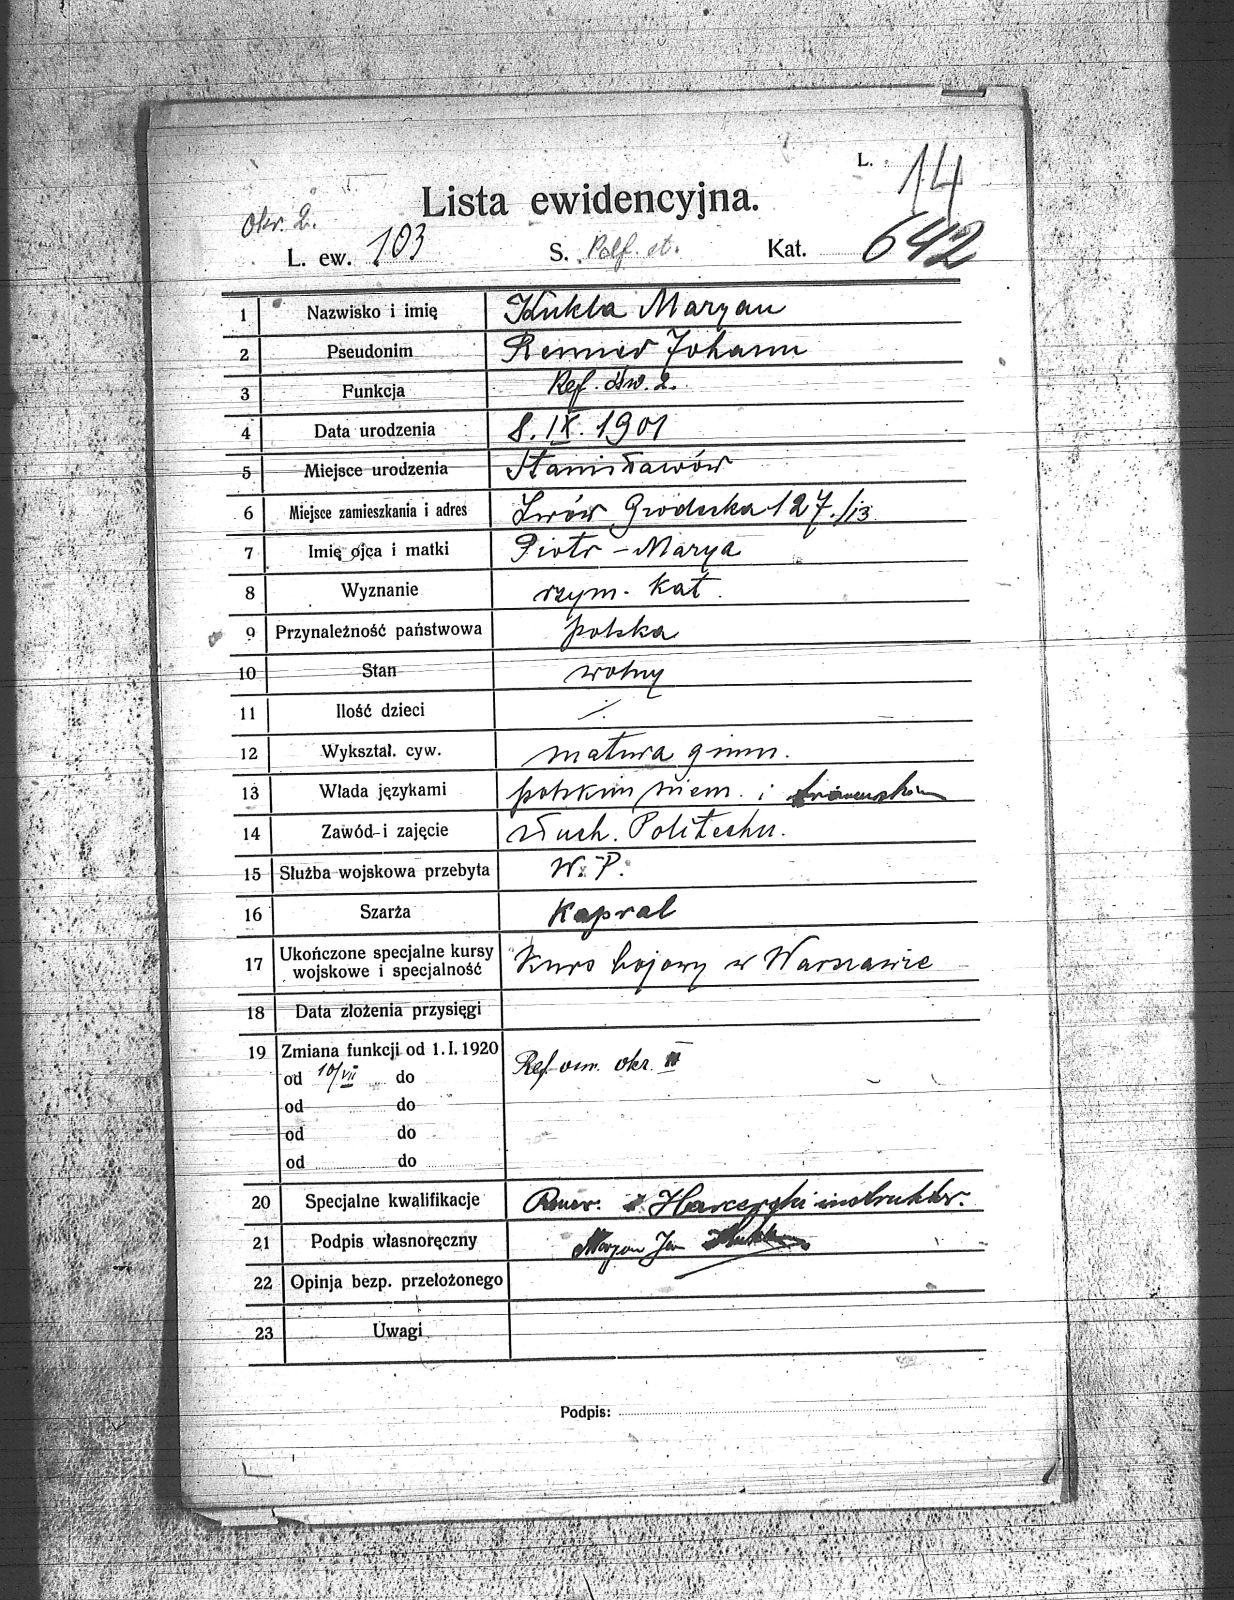 L. 14
Lista ewidencyjna.
Okr. 2.
L. ew. 103 S. Kat. 642
1 Nazwisko i imię Kukla Maryan
2 Pseudonim Renner Johann
3 Funkcja Ref. ośw. 2.
4 Data urodzenia 8. IX. 1901
5 Miejsce urodzenia Stanisławów
6 Miejsce zamieszkania i adres Lwów Grodecka 127./13.
7 Imię ojca i matki Piotr – Marya
8 Wyznanie rzym. Kat.
9 Przynależność państwowa polska
10 Stan wolny
11 Ilość dzieci ·/·
12 Wykształ. cyw. matura gimn.
13 Włada językami polskim niem. i
14 Zawód i zajęcie słuch. Politechn.
15 Służba wojskowa przebyta W. P.
16 Szarża Kapral
17 Ukończone specjalne kursy
wojskowe i specjalność Kurs bojowy w Warszawie
18 Data złożenia przysięgi
19 Zmiana funkcji od 1. I. 1920
od 10/VII do Ref. okr. II
od do
od do
od do
20 Specjalne kwalifikacje Harcerski instruktor.
21 Podpis własnoręczny Maryan Jan Kukla
22 Opinja bezp. przełożonego
23 Uwagi
Podpis: